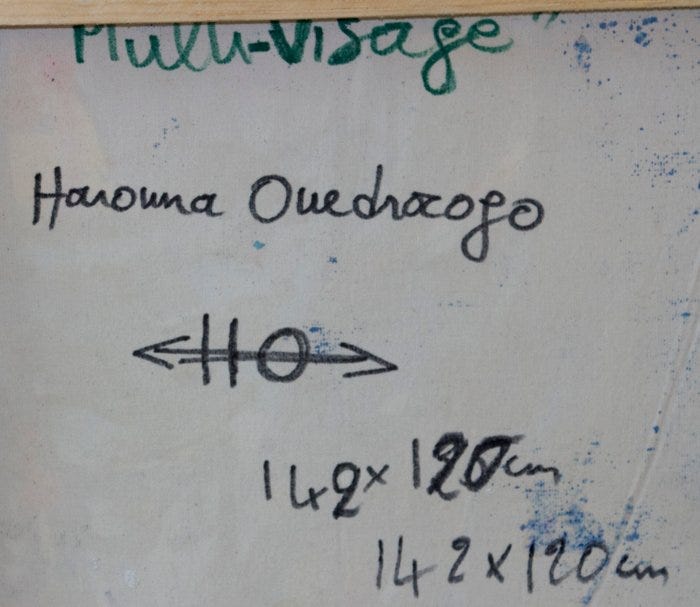 Multi-Visage"
Harouna Ouedraogo
HO
142 x 120 cm
142 x 120 cm